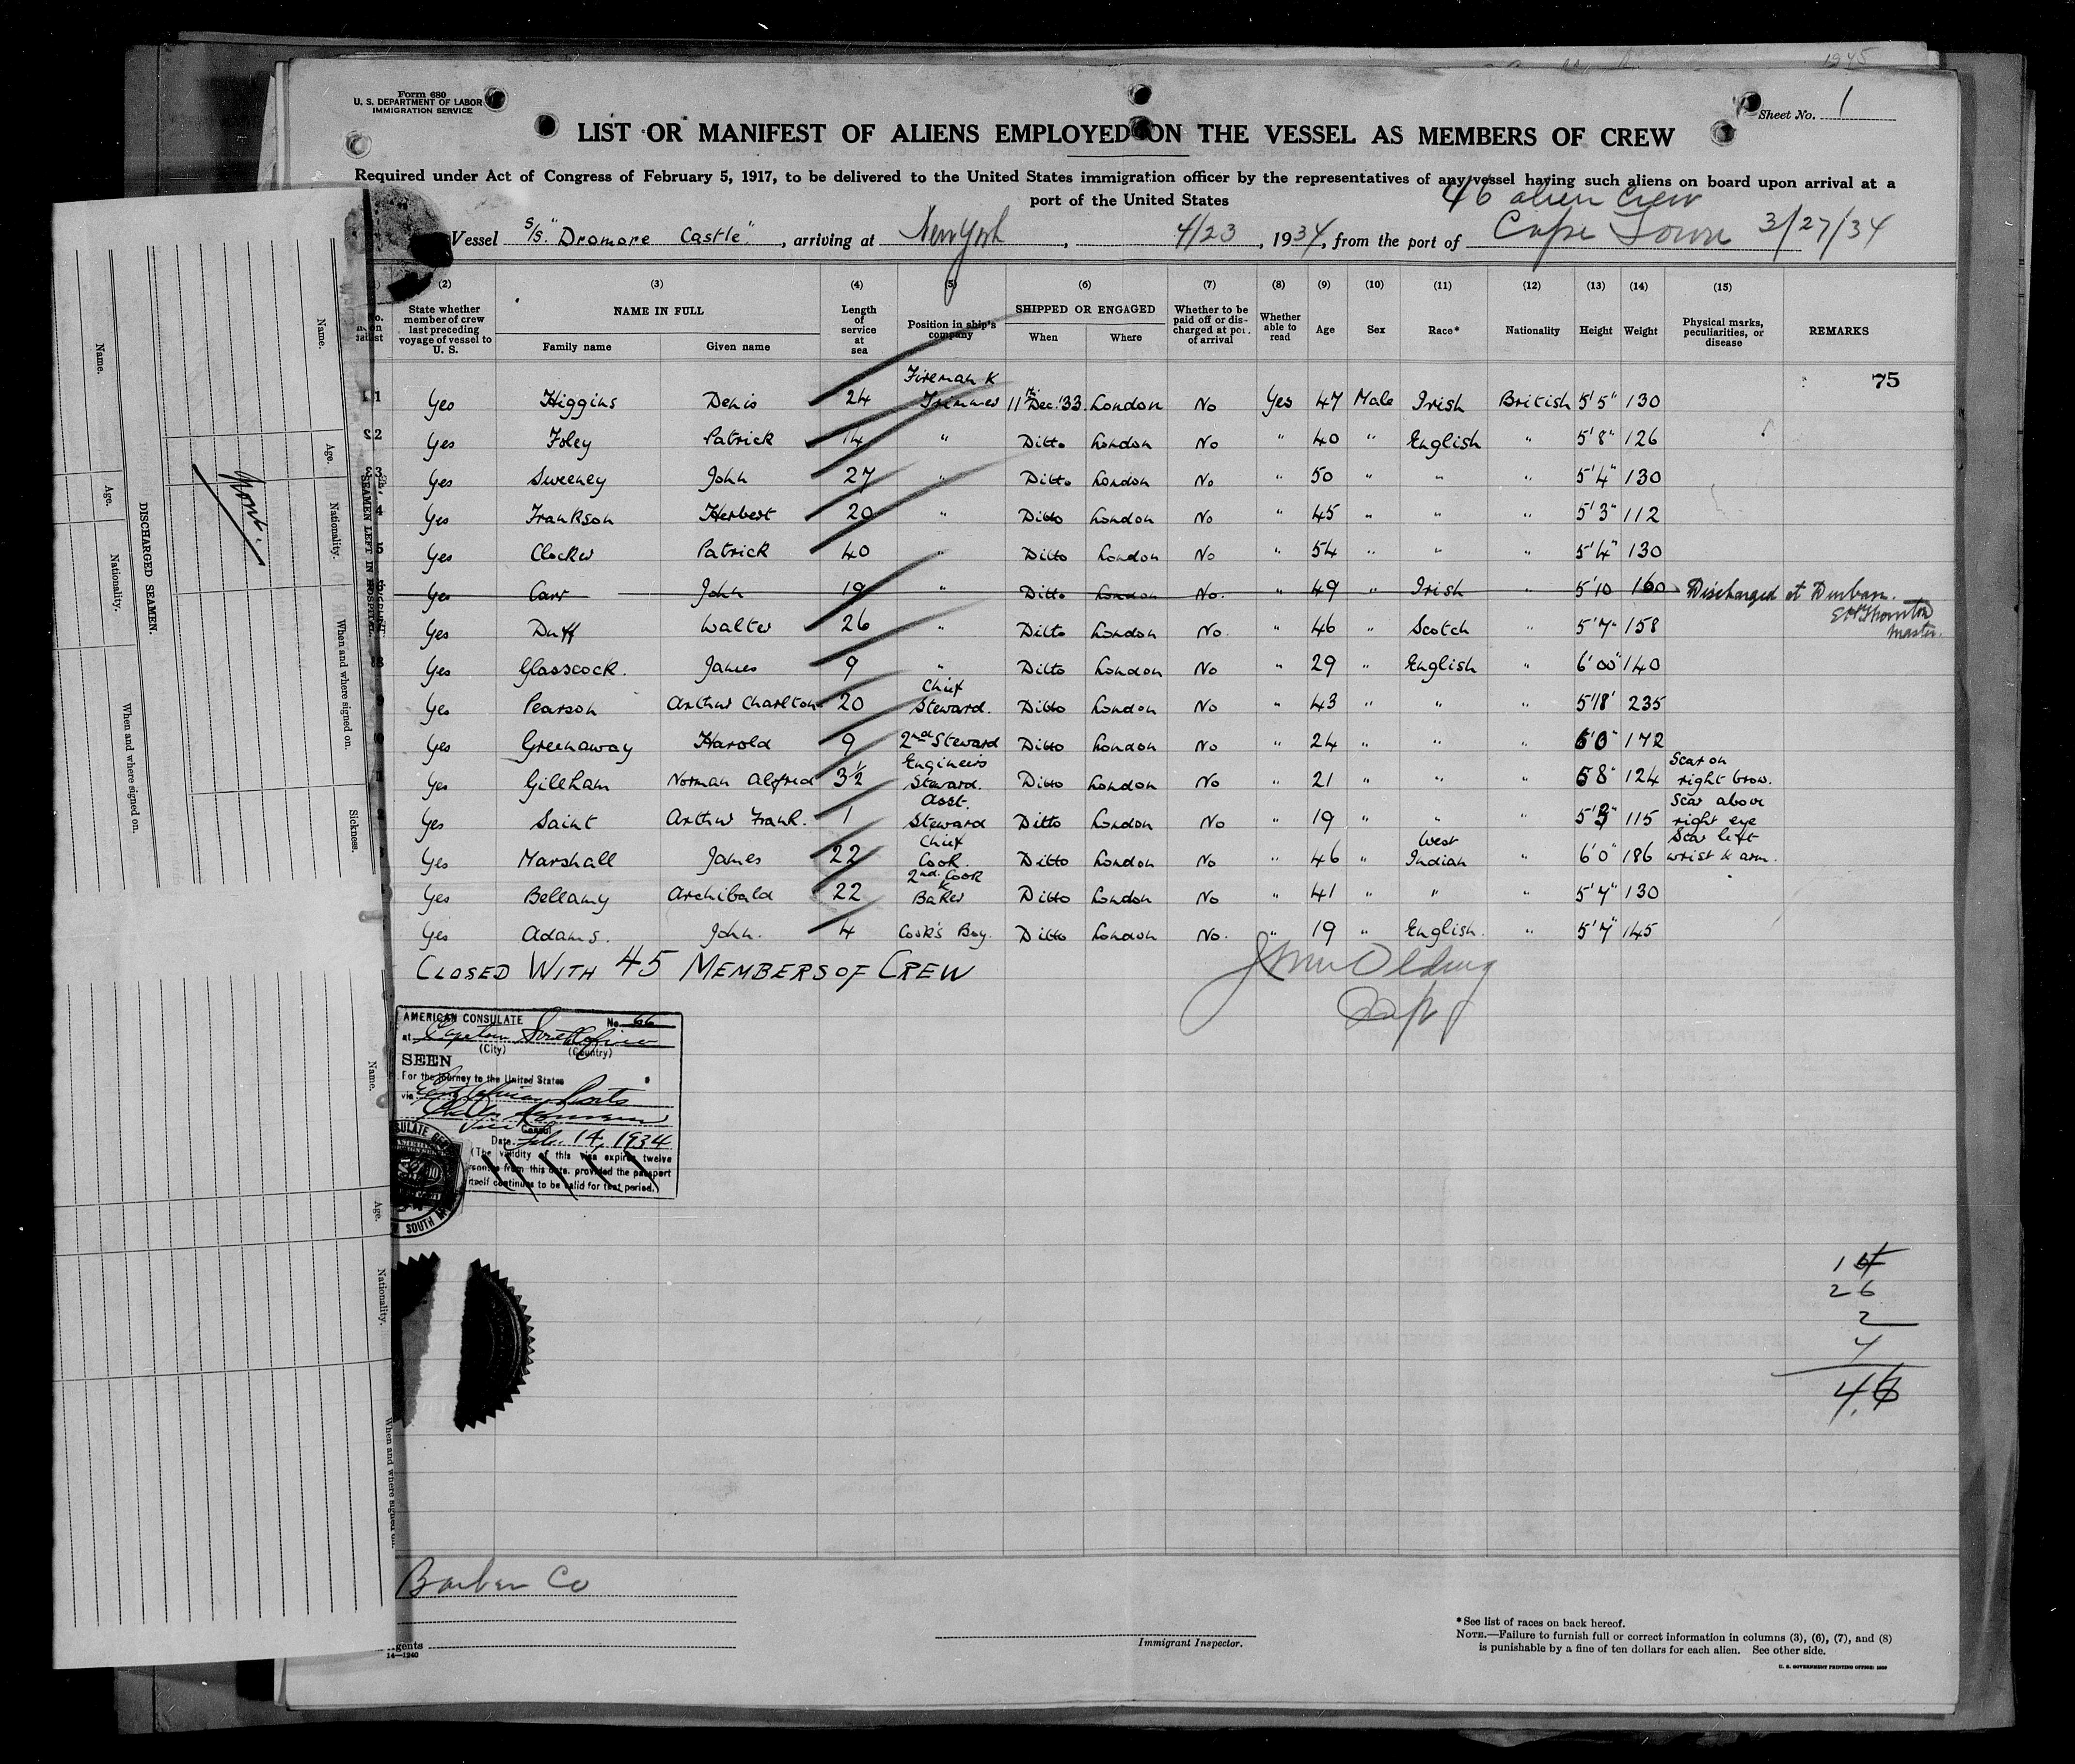 1945
Form 680
U. S. DEPARTMENT OF LABOR
IMMIGRATION SERVICE
Sheet No. 1
LIST OR MANIFEST OF ALIENS EMPLOYED ON THE VESSEL AS MEMBERS OF CREW
Required under Act of Congress of February 5, 1917, to be delivered to the United States immigration officer by the representatives of any vessel having such aliens on board upon arrival at a
port of the United States
46 alien crew
Vessel S/S. "Dromore Castle", arriving at New York, 4/23, 1934, from the port of Cape Town 3/27/34
(2) (3) (4) (5) (6) (7) (8) (9) (10) (11) (12) (13) (14) (15)
State whether member of crew last preceding voyage of vessel to U. S.
NAME IN FULL
Family name Given name
Length of service at sea
Position in ship's company
SHIPPED OR ENGAGED
When Where
Whether to be paid off or discharged at port of arrival
Whether able to read
Age Sex Race* Nationality Height Weight
Physical marks, peculiarities, or disease
REMARKS
75
1 Yes Higgins Denis 24 Fireman & Trimmer 11th Dec. '33. London No Yes 47 Male Irish British 5'5" 130
2 Yes Foley Patrick 14 " Ditto London No " 40 " English " 5'8" 126
3 Yes Sweeney John 27 " Ditto London No " 50 " " " 5'4" 130
4 Yes Frankson Herbert 20 " Ditto London No " 45 " " " 5'3" 112
5 Yes Clocker Patrick 40 " Ditto London No " 54 " " " 5'4" 130
6 Yes Carr John 19 " Ditto London No. " 49 " Irish " 5'10 160 Discharged at Durban.
Master.
Yes Duff Walter 26 " Ditto London No. " 46 " Scotch " 5'7" 158
8 Yes Glasscock. James 9 " Ditto London No " 29 " English " 6'00" 140
9 Yes Pearson Arthur Charlton 20 Chief Steward. Ditto London No " 43 " " " 235
Yes Greenaway Harold 9 2nd Steward Ditto London No " 24 " " " 6'0" 172
Yes Gillham Norman Alfred 3½ Engineers Steward. Ditto London No " 21 " " " 5 8" 124 Scar on right brow.
Yes Saint Arthur Frank. 1 Asst. Steward Ditto London No " 19 " " " 5'3" 115 Scar above right eye
Yes Marshall James 22 Chief Cook. Ditto London No " 46 " West Indian " 6'0" 186 Scar left wrist & arm.
Yes Bellamy Archibald 22 2nd Cook & Baker Ditto London No " 41 " " " 5'7" 130
Yes Adams. John. 4 Cook's Boy. Ditto London No. " 19 " English. " 5'7" 145
CLOSED WITH 45 MEMBERS OF CREW
AMERICAN CONSULATE No. 66
at Capetown South Africa
(City) (Country)
SEEN
For the journey to the United States
via
Vice Consul
Date Feb. 14, 1934
(The validity of this visa expires twelve
months from this date, provided the passport
itself continues to be valid for that period.)
SOUTH
26
2
4
46
Barber Co
Agents
14—1240
Immigrant Inspector.
*See list of races on back hereof.
NOTE.—Failure to furnish full or correct information in columns (3), (6), (7), and (8)
is punishable by a fine of ten dollars for each alien. See other side.
U. S. GOVERNMENT PRINTING OFFICE: 1930
DISCHARGED SEAMEN.
Name. Age. Nationality. When and where signed on.
SEAMEN LEFT IN HOSPITAL.
Name. Age. Nationality. When and where signed on. Sickness.
Name. Age. Nationality. When and where signed on.